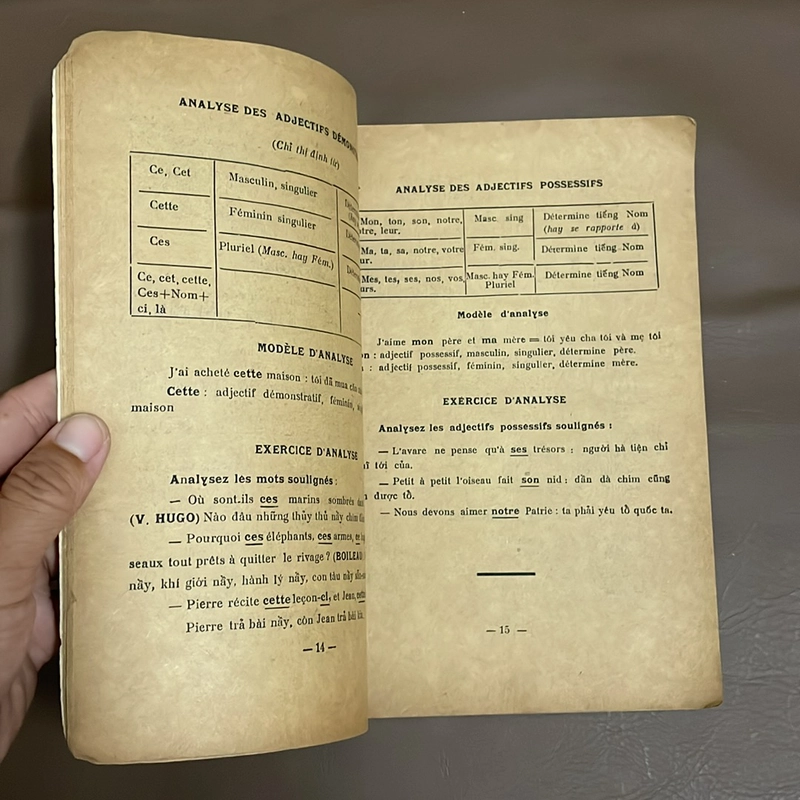 ANALYSE DES ADJECTIFS
(Chỉ thị định từ)
Ce, Cet Masculin, singulier
Cette Féminin singulier
Ces Pluriel (Masc. hay Fém.)
Ce, cet, cette,
Ces+Nom+
ci, là
MODÈLE D'ANALYSE
J'ai acheté cette maison : tôi đã mua
Cette : adjectif démonstratif, féminin,
maison
EXERCICE D'ANALYSE
Analysez les mots soulignés :
— Où sont-ils ces marins sombrés
(V. HUGO) Nào đâu những thủy thủ nầy chìm
— Pourquoi ces éléphants, ces armes,
seaux tout prêts à quitter le rivage ? (BOILEAU
nầy, khí giới nầy, hành lý nầy, con tàu nầy
— Pierre récite cette leçon-ci, et Jean,
Pierre trả bài nầy, còn Jean trả bài
— 14 —
ANALYSE DES ADJECTIFS POSSESSIFS
Mon, ton, son, notre, Masc. sing Détermine tiếng Nom
leur. (hay se rapporte à)
Ma, ta, sa, notre, votre Fém. sing. Détermine tiếng Nom
Mes, tes, ses, nos, vos, Masc. hay Fém. Détermine tiếng Nom
Pluriel
Modèle d'analyse
J'aime mon père et ma mère = tôi yêu cha tôi và mẹ tôi
: adjectif possessif, masculin, singulier, détermine père.
: adjectif possessif, féminin, singulier, détermine mère.
EXERCICE D'ANALYSE
Analysez les adjectifs possessifs soulignés :
— L'avare ne pense qu'à ses trésors : người hà tiện chỉ
tới của.
— Petit à petit l'oiseau fait son nid : dần dà chim cũng
được tổ.
— Nous devons aimer notre Patrie : ta phải yêu tổ quốc ta.
— 15 —